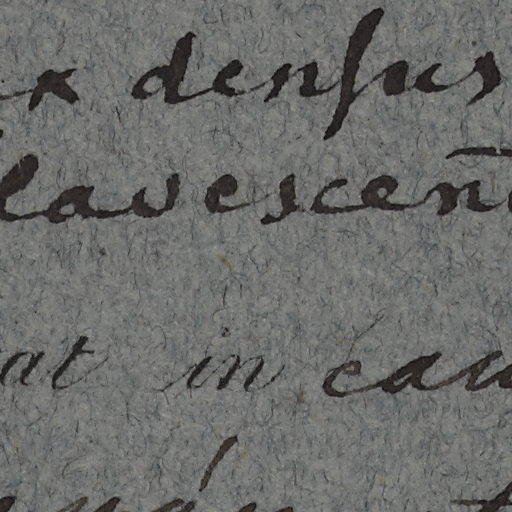 ex denſus
lavescen̄
at in cau